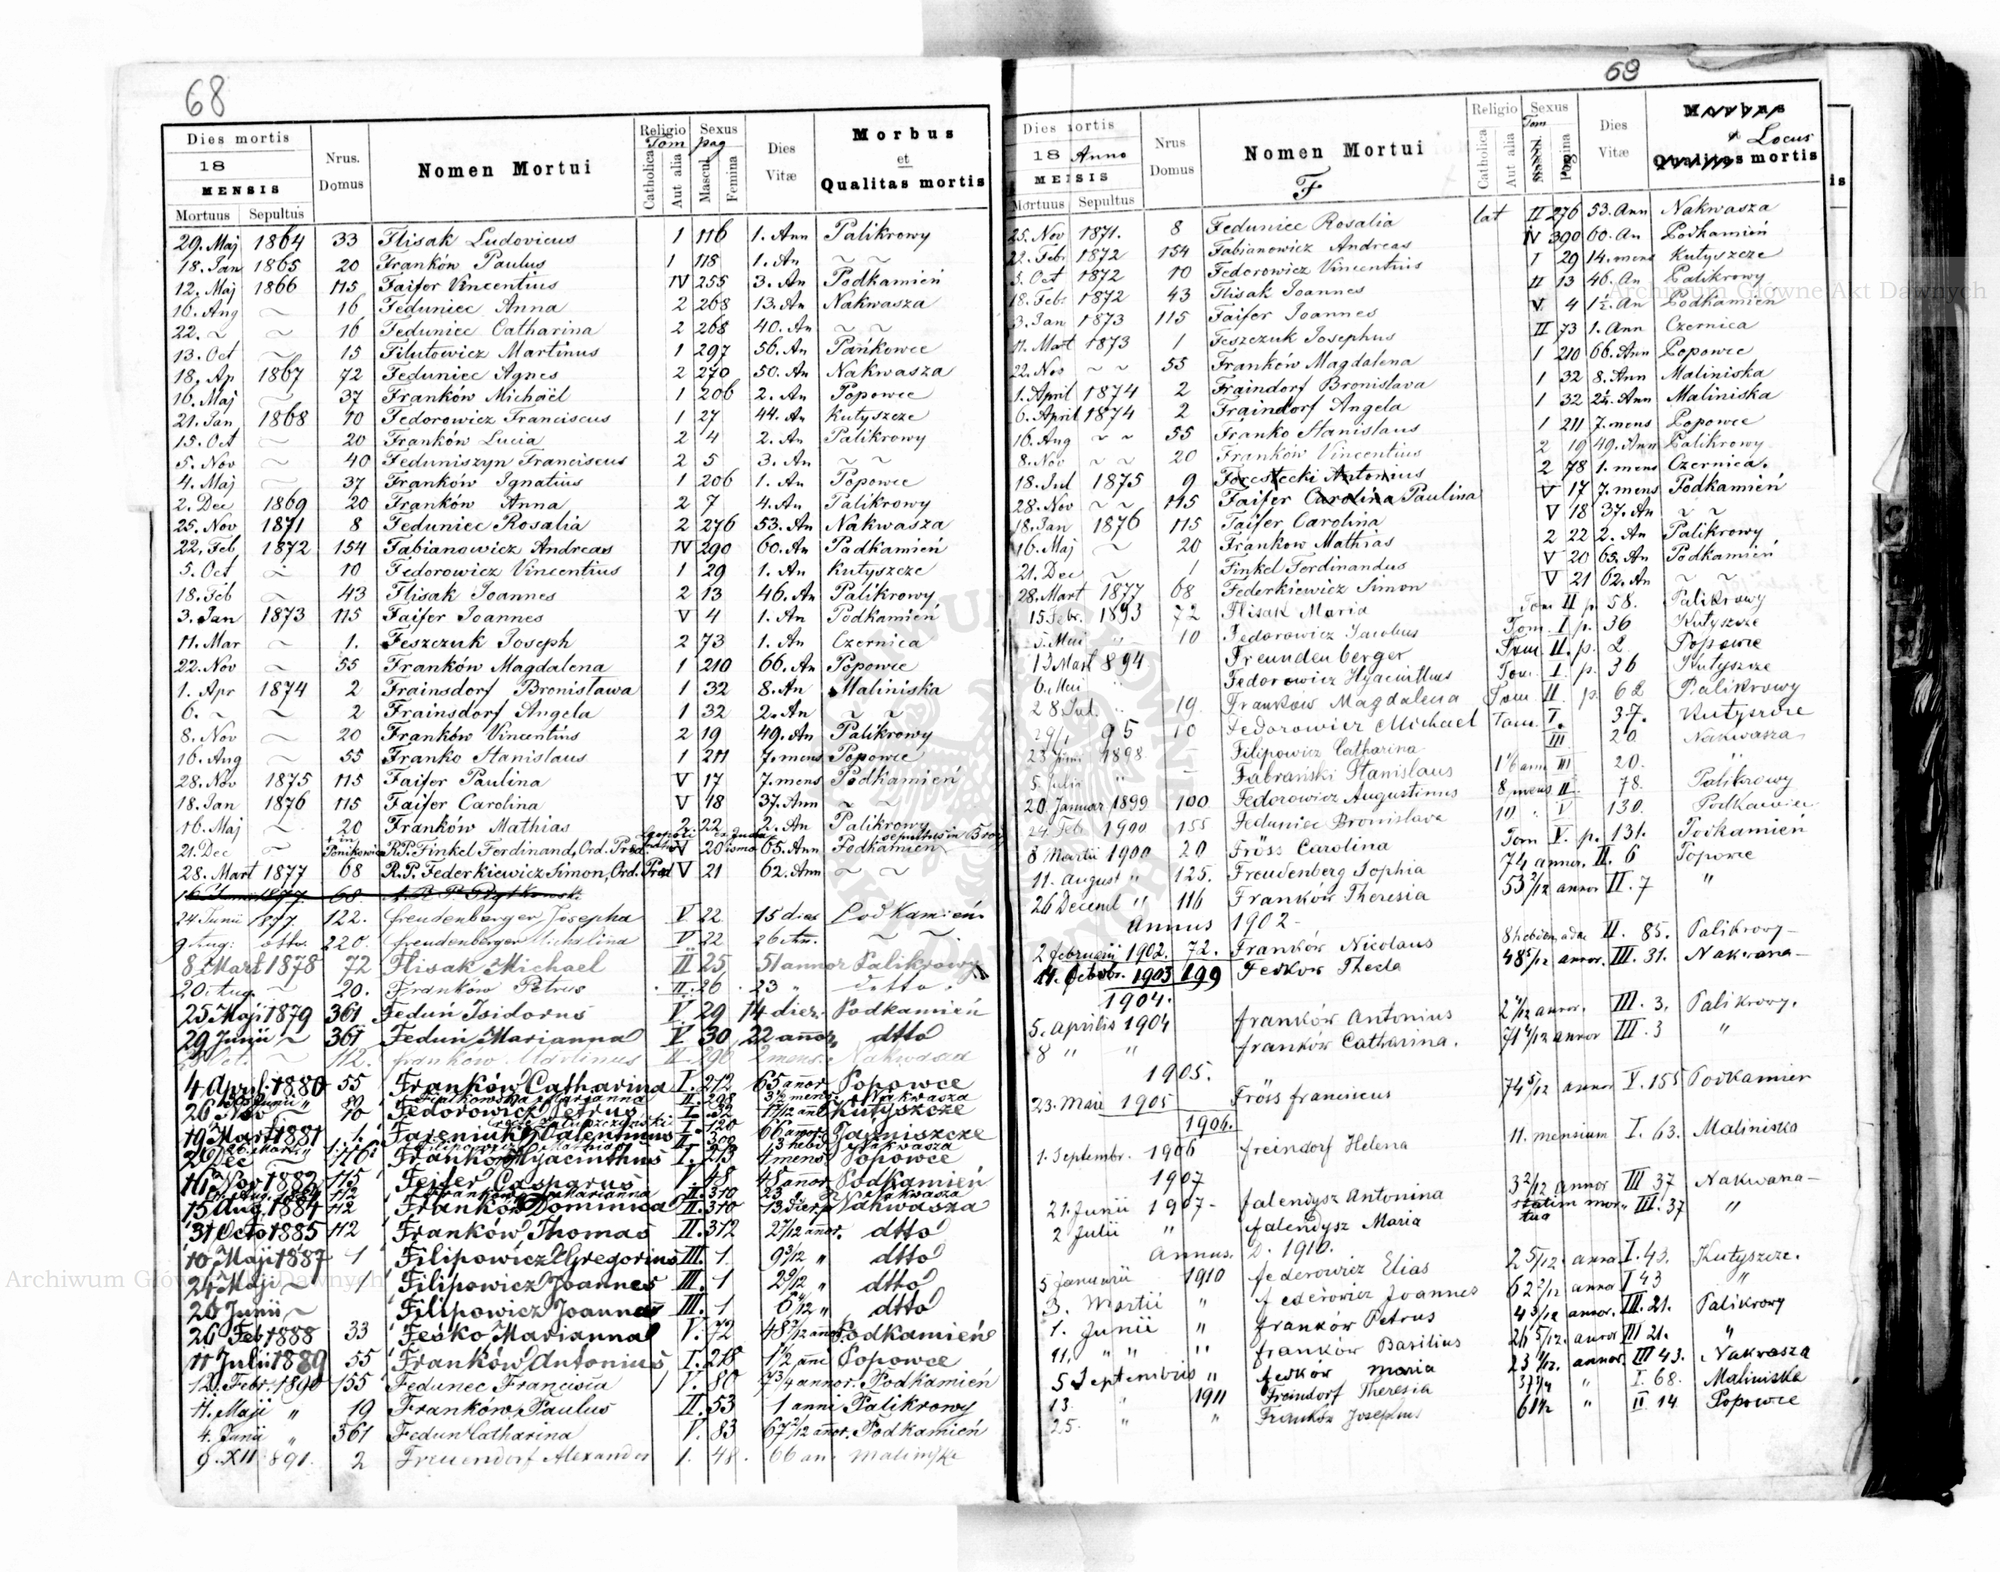 68
Dies mortis
18
MENSIS
Mortuus Sepultus
Nrus. Domus
Nomen Mortui
Religio
Tom
Catholica
Aut alia
Sexus
pag
Mascul.
Femina
Dies Vitæ
Morbus
et
Qualitas mortis
29. Maj 1864 33 Flisak Ludovicus 1 116 1. Ann Palikrowy
18. Jan 1865 20 Franków Paulus 1 118 1. An ~ ~
12. Maj 1866 115 Faifer Vincentius IV 255 3. An Podkamień
16. Aug ~ 16 Feduniec Anna 2 268 13. An Nakwasza
22. ~ ~ 16 Feduniec Catharina 2 268 40. An ~ ~
13. Oct ~ 15 Filutowicz Martinus 1 297 56. An Pańkowce
18. Ap 1867 72 Feduniec Agnes 2 270 50. An Nakwasza
16. Maj ~ 37 Franków Michaël 1 206 2. An Popowce
21. Jan 1868 10 Fedorowicz Franciscus 1 27 44. An Kutyszcze
15. Oct ~ 20 Franków Lucia 2 4 2. An Palikrowy
5. Nov ~ 40 Feduniszyn Franciscus 2 5 3. An ~ ~
4. Maj ~ 37 Franków Ignatius 1 206 1. An Popowce
2. Dec 1869 20 Franków Anna 2 7 4. An Palikrowy
25. Nov 1871 8 Feduniec Rosalia 2 276 53. An Nakwasza
22. Feb 1872 154 Fabianowicz Andreas IV 290 60. An Padkamień
5. Oct ~ 10 Fedorowicz Vincentius 1 29 1. An Kutyszcze
18. Feb ~ 43 Flisak Joannes 2 13 46. An Palikrowy
3. Jan 1873 115 Faifer Joannes V 4 1. An Podkamień
11. Mar ~ 1. Feszczuk Joseph 2 73 1. An Czernica
22. Nov ~ 55 Franków Magdalena 1 210 66. An Popowce
1. Apr 1874 2 Frainsdorf Bronisława 1 32 8. An Maliniska
6. ~ ~ 2 Frainsdorf Angela 1 32 2. An ~ ~
8. Nov ~ 20 Franków Vincentius 2 19 49. An Palikrowy
16. Aug ~ 55 Franko Stanislaus 1 211 7. mens Popowce
28. Nov 1875 115 Faifer Paulina V 17 7. mens Podkamień
18. Jan 1876 115 Faifer Carolina V 18 37. Ann ~ ~
16. Maj ~ 20 Franków Mathias 2 22 2. An Palikrowy
21. Dec ~ Ponikowica R.P. Finkel Ferdinand, Ord. Præd. IV 20 65. Ann Podkamień
28. Mart 1877 68 R.P. Federkiewicz Simon, Ord. Præd V 21 62. Ann ~ ~
24 Junii 1877. 122. Freudenberger Josepha V 22 15 dies Podkamień
9 Aug: 220. Freudenberger Michalina V 22 26 An. ~ ~
8 Mart 1878 72 Flisak Michael II 25 51 annor Palikrowy
20. Aug. 20. Franków Petrus II. 26 23 " detto.
25 Maji 1879 361 Feduń Isidorus V 29 14 dier. Podkamień
29 Junii ~ 361 Feduń Marianna V 30 22 annor dtto
112. Franków Martinus II 296 2 mens. Nakwasza
4 April: 1880 55 Franków Catharina I. 212 65 annor Popowce
26 Nov 10 Fedorowicz Petrus I. 32 Kutyszcze
19 Mart 1881 1. Valentinus I. 120 66 annor. Jasniszcze
2 Dec ~ Franków Hyacinthus I. 213 4 mens Popowce
16 Nov 1883 115 Feifer Casparus V 48 48 annor Podkamień
15 Aug. 1884 112 Franków Dominica II. 310 13 dier. Nakwasza
31 Octo 1885 112 Franków Thomas II. 312 2 7/12 annor. dtto
10 Maji 1887 1 Filipowicz Gregorius III. 1 9 3/12 " dtto
24 Maji ~ 1 Filipowicz Joannes III. 1 dtto
20 Junii ~ Filipowicz Joannes III. 1 dtto
26 Feb 1888 33 Feśko Marianna V. 72 Podkamień
11 Julii 1889 55 Franków Antonius I. 218 1 1/2 anni Popowce
12. Febr. 1890 155 Fedunec Francisca V. 80 annor. Podkamień
11. Maji " 19 Franków Paulus II. 53 1 anni Palikrowy
4. Junii " 361 Fedun Catharina V. 83 67 2/12 annor. Podkamień
9. XII. 891. 2 Freuendorf Alexander 1. 48. 66 an.
69
Dies mortis
18 Anno
MENSIS
Mortuus Sepultus
Nrus Domus
Nomen Mortui
F
Religio
Catholica
Aut alia
Sexus
Tom
Pag
Dies Vitæ
Morbus
Locus
Qualitas mortis
25. Nov 1871. 8 Feduniec Rosalia lat II 276 53. Ann Nakwasza
22. Feb. 1872 154 Fabianowicz Andreas IV 390 60. An Podkamień
5. Oct 1872 10 Fedorowicz Vincentius I 29 14. mens Kutyszcze
18. Feb. 1872 43 Flisak Joannes II 13 46. An Palikrowy
3. Jan 1873 115 Faifer Joannes V. 4 1½. An Podkamień
11. Mart 1873 1 Feszczuk Josephus II 73 1. Ann Czernica
22. Nov ~ ~ 55 Franków Magdalena 1 210 66. Ann Popowce
1. April 1874 2 Fraindorf Bronislava 1 32 8. Ann Maliniska
6. April 1874 2 Fraindorf Angela 1 32 2½. Ann Maliniska
16. Aug ~ ~ 55 Franko Stanislaus 1 211 7. mens Popowce
8. Nov ~ ~ 20 Franków Vincentius 2 19 49. Ann Palikrowy
18. Jul 1875 9 Forestecki Antonius 2 78 1. mens Czernica.
28. Nov ~ ~ 115 Faifer Carolina Paulina V 17 7. mens Podkamień
18. Jan 1876 115 Faifer Carolina V 18 37. An ~ ~
16. Maj ~ 20 Frankow Mathias 2 22 2. An Palikrowy
21. Dec ~ 1 Finkel Ferdinandus V 20 65. An Podkamień
28. Mart 1877 68 Federkiewicz Simon V 21 62. An ~ ~
15 Febr. 1893 72 Flisak Maria Tom II p. 58. Palikrowy
5. Mai " 10 Fedorowicz Jacobus Tom. I p. 36 Kutyszcze
13 Mart 894 Freundenberger Tom II. p. 2 Popowce
6. Mai " Fedorowicz Hyacinthus Tom. I. p. 36 Kutyszcze
28 Jul. " 19. Franków Magdalena Tom II p. 62 Palikrowy
29/1 95 10 Fedorowicz Michael Tom. I. 37. Kutyszcze
23 Juni 1898 Filipowicz Catharina III. 20 Nakwasza
5. Julii " Fabrański Stanislaus III 20. "
20 Januar 1899 100 Fedorowicz Augustinus 8 mens II 78. Palikrowy
24 Feb 1900 155 Feduniec Bronislava 10 " V 130. Podkamień
8 Martii 1900 20 Fröss Carolina Tom V. p. 131. Podkamień
11. August " 125. Freudenberg Sophia 74 annor. II. 6 Popowce
26 Decemb " 116 Franków Theresia 53 2/12 annor II. 7 "
Annus 1902-
2 februarii 1902. 72. Franków Nicolaus II. 85. Palikrowy-
14. Octobr. 1903 199 Feskow Thecla 48 5/12 annor. III. 31. Nakwasza-
1904.
5. Aprilis 1904 Franków Antonius annor. III. 3. Palikrowy.
8 " " Franków Catharina. annor III. 3 "
1905.
23. Maii 1905 Fröss Franciscus 74 5/12 annor V. 155 Podkamień
1906.
1. Septembr. 1906 Freindorf Helena 11. mensium I. 63. Maliniska
1907
21. Junii 1907- Falendysz Antonina 3 2/12 annor III 37 Nakwasza-
2 Julii " Falendysz Maria statim mortua III. 37 "
Annus. D. 1910.
5 Januarii 1910 Federowicz Elias 2 5/12. anno I. 43. Kutyszcze.
3. Martii " Federowicz Joannes 62 2/12 annor I 43 "
1. Junii " Franków Petrus annor. III. 21. Palikrowy
11. " " " Franków Basilius 26 5/12. annor III 21. "
5 Septembris " Fesków Maria 23 annor. III 43. Nakwasza
13. " 1911 Freindorf Theresia " I. 68. Maliniska
25. " " Franków Josephus " II. 14 Popowce
Archiwum Główne Akt Dawnych
Archiwum Główne Akt Dawnych